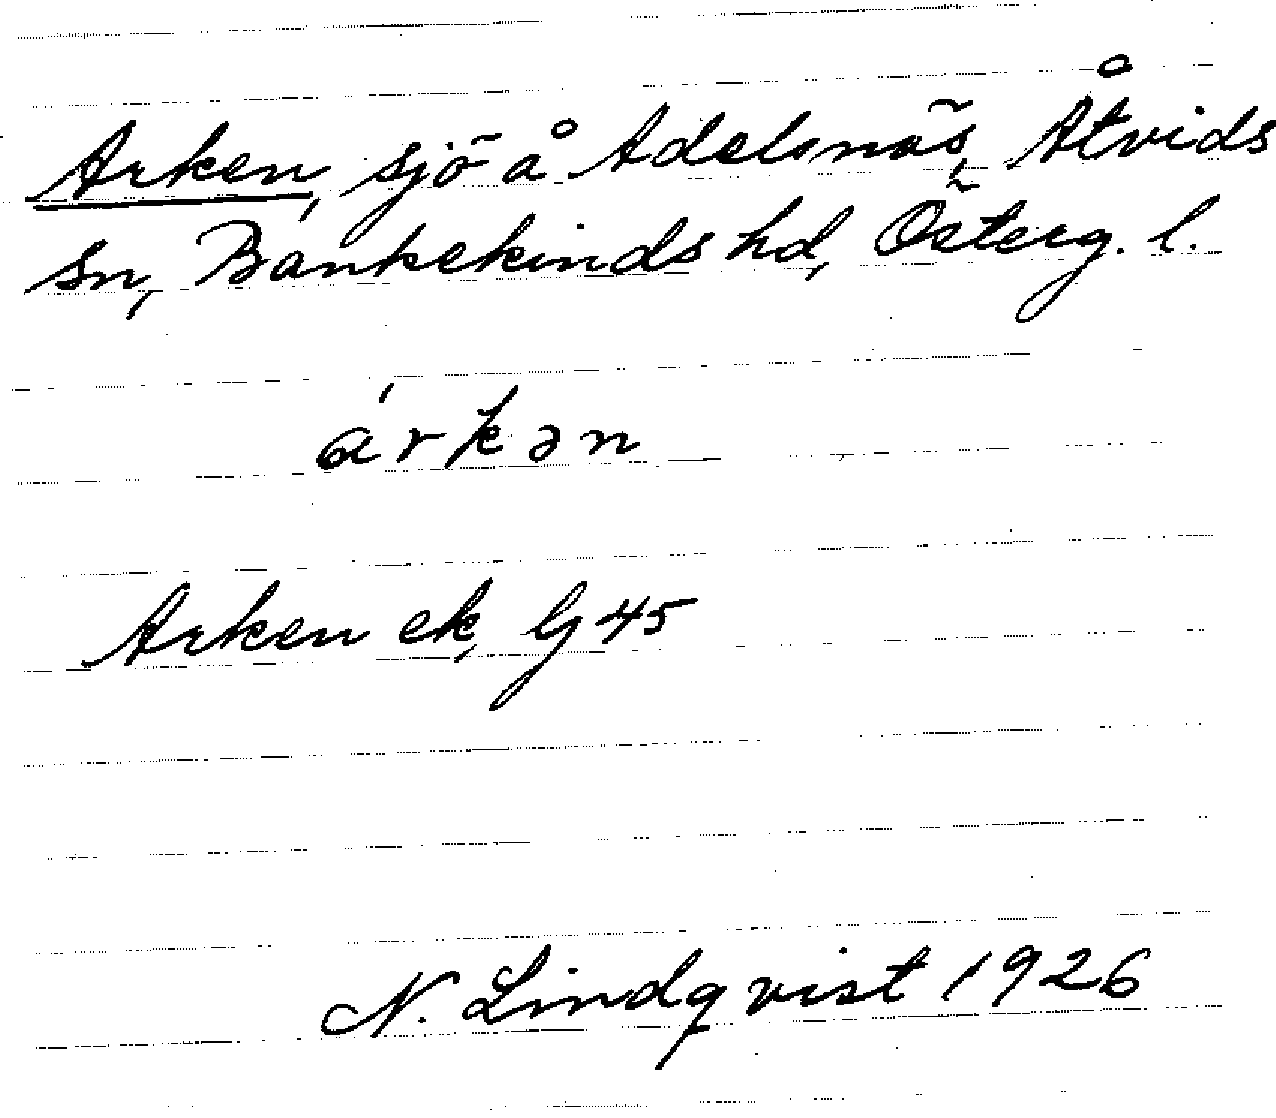 Arken, sjö å Adelsnäs, Åtvids
sn, Bankekinds hd, Österg. l.
árkən
Arken ek, Gj 45
N. Lindqvist 1926